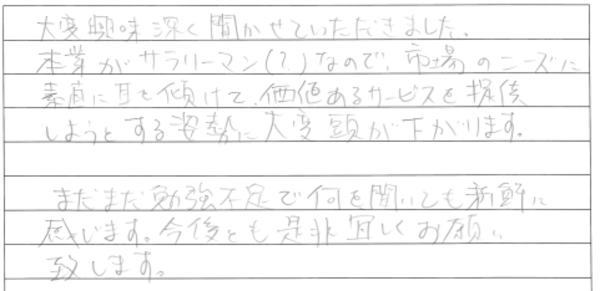 大変興味深く聞かせていただきました。
本業がサラリーマン(?)なので、市場のニーズに
素直に耳を傾けて、価値あるサービスを提供
しようとする姿勢に大変頭が下がります。
まだまだ勉強不足で何を聞いても新鮮に
感じます。今後とも是非宜しくお願い
致します。